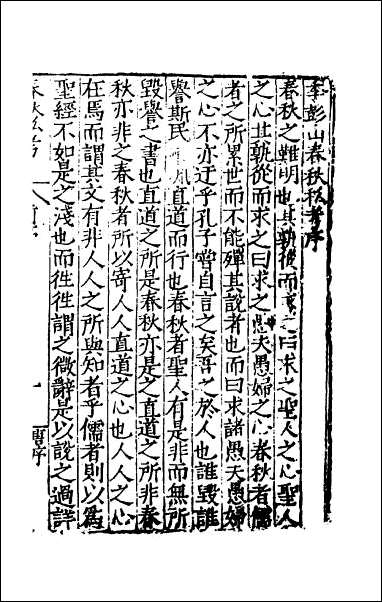 季彭山春秋私考序
春秋之難明也其孰從而求之曰求之聖人之心聖人
之心其孰從而求之曰求之愚夫愚婦之心春秋者儒
者之所累世而不能殫其說者也而曰求諸愚夫愚婦
之心不亦迂乎孔子嘗自言之矣吾之於人也誰毀誰
譽斯民直道而行也春秋者聖人有是非而無所
毀譽之書也直道之所是春秋亦是之直道之所非春
秋亦非之春秋者所以寄人人直道之心也人人之心
在焉而謂其文有非人人之所與知者乎儒者則以為
聖經不如是之淺也而徃徃謂之微辭是以說之過詳
春秋私考 一 唐序